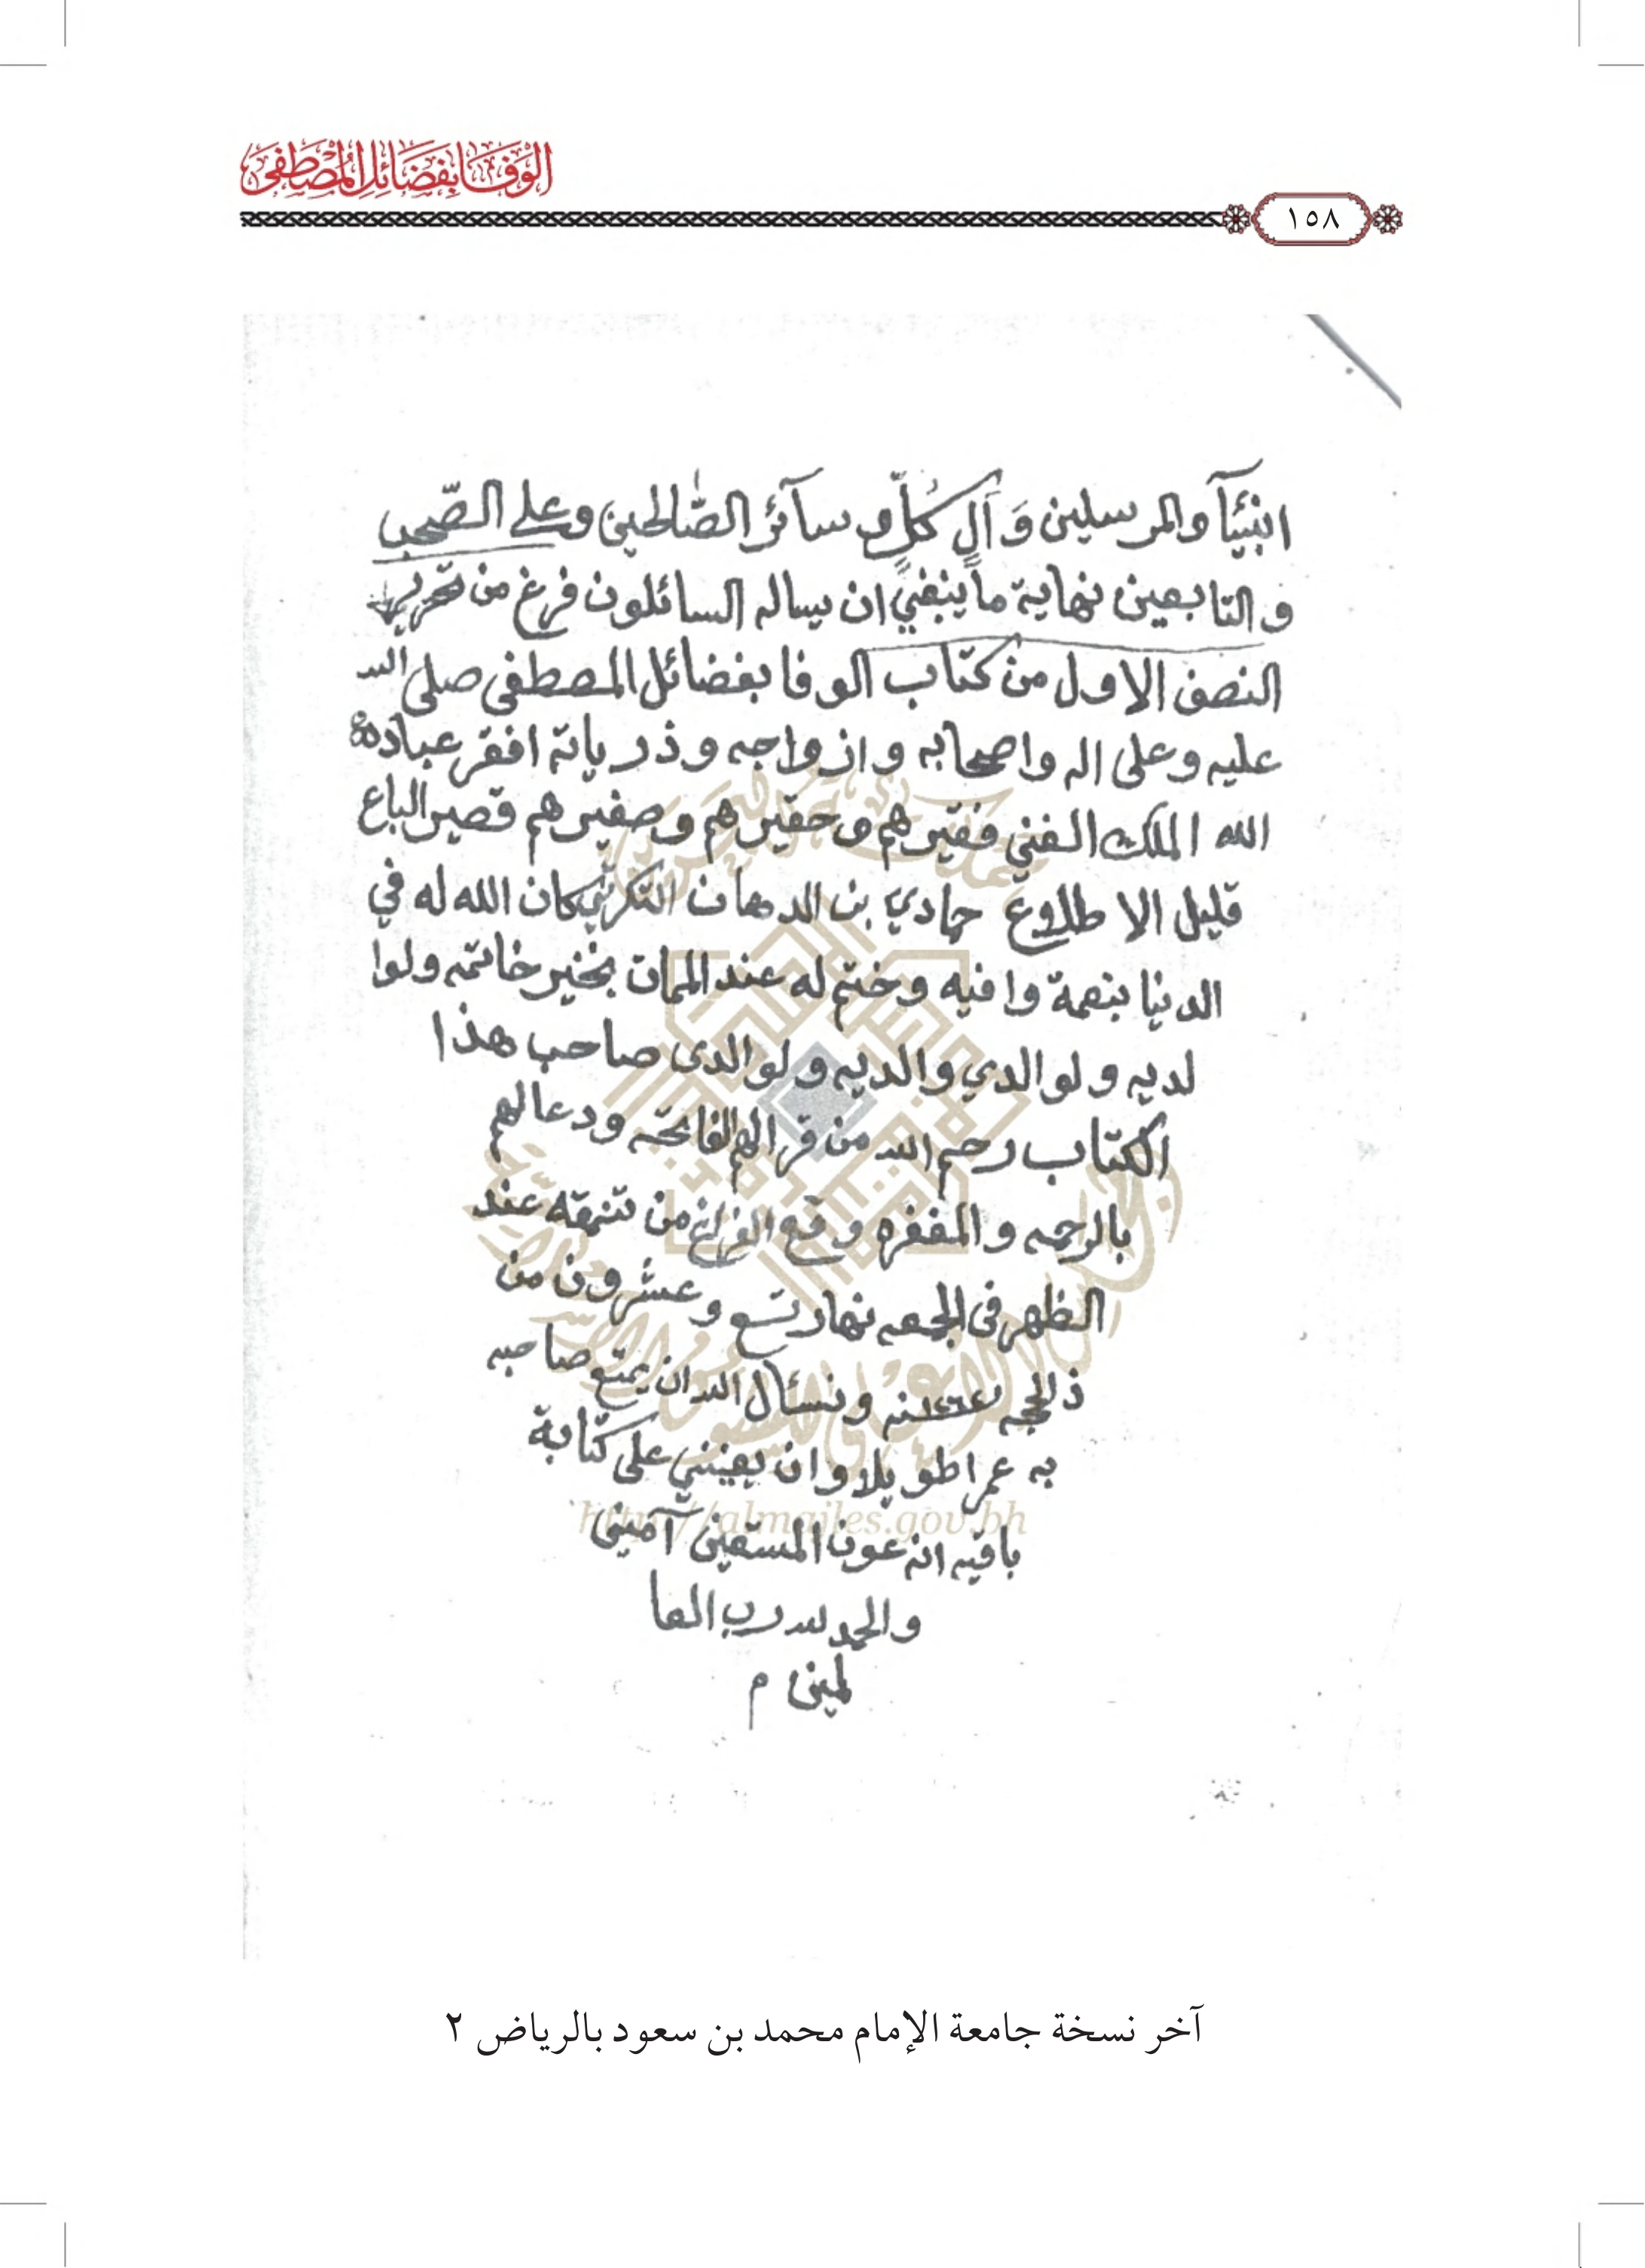 الوفا بفضائل المصطفى
١٥٨
انبيآ والمرسلين وَآلِ كُلٍّ و سآئر الصّٰالحين وعلى الصّحب
و التابعين نهاية ما ينبغي ان يساله السائلون فرغ من تحرير
النصف الاول من كتاب الوفا بفضائل المصطفى صلى الله
عليه وعلى اله واصحابه وازواجه وذرياته افقر عباد
الله الملك الغني فقيرهم وحقيرهم وصغيرهم قصير الباع
قليل الاطلاع حمادي بن الدهان التكريتي كان الله له في
الدنيا بنعمة وافيه وختم له عند الممات بخير خاتمه ولوا
لديه ولوالدي والديه ولوالدى صاحب هذا
الكتاب رحم الله من قرا لهم الفاتحه ودعا لهم
بالرحمه والمغفره وقع الفراغ من تنمقه عند
الظهر في الجمعه نهار تسع وعشرون من
ذالحجه ونسئال الله ان يمتع صاحبه
به عمرا طويلا وان يعينني على كتابة
باقيه انه عون المستعين آمين
والحمد لله رب العا
لمين م
http://almajles.gov.bh
آخر نسخة جامعة الإمام محمد بن سعود بالرياض ٢